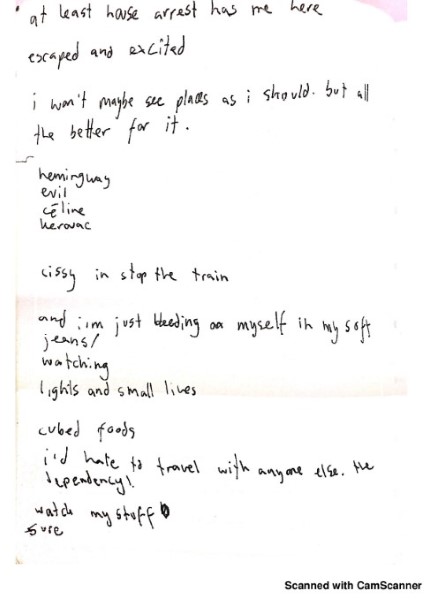 at least house arrest has me here
escaped and excited
i won't maybe see places as i should. but all
the better for it.
hemingway
evil
céline
kerouac
cissy in stop the train
and i'm just bleeding on myself in my soft
jeans/
watching
lights and small lives
cubed foods
i'd hate to travel with anyone else. the
dependency!
watch my stuff
sure
Scanned with CamScanner